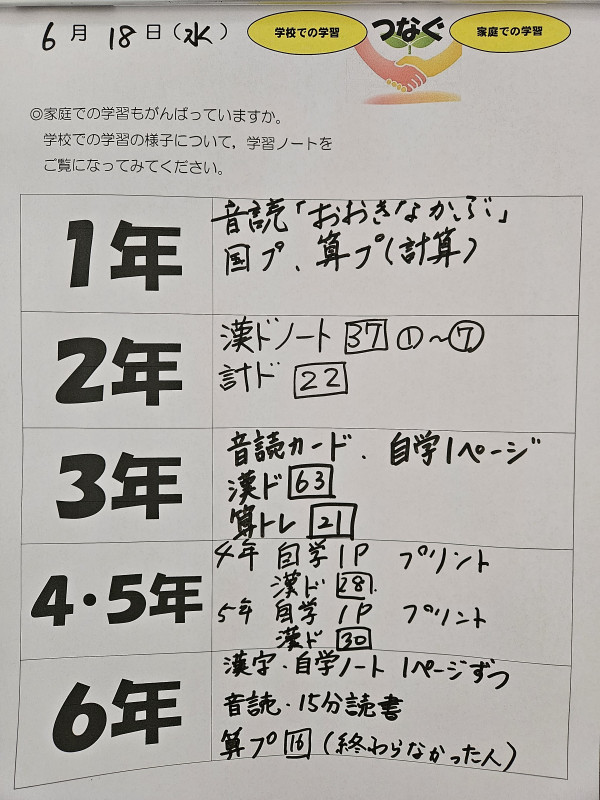 6月18日(水)
学校での学習 つなぐ 家庭での学習
◎家庭での学習もがんばっていますか。
学校での学習の様子について，学習ノートを
ご覧になってみてください。
1年
音読「おおきなかぶ」
国プ、算プ(計算)
2年
漢ドノート 37 ①～⑦
計ド 22
3年
音読カード、自学1ページ
漢ド 63
算トレ 21
4・5年
4年 自学1P プリント
漢ド 28
5年 自学1P プリント
漢ド 30
6年
漢字・自学ノート 1ページずつ
音読・15分読書
算プ 16 (終わらなかった人)